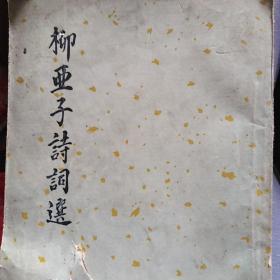 柳亞子詩詞選